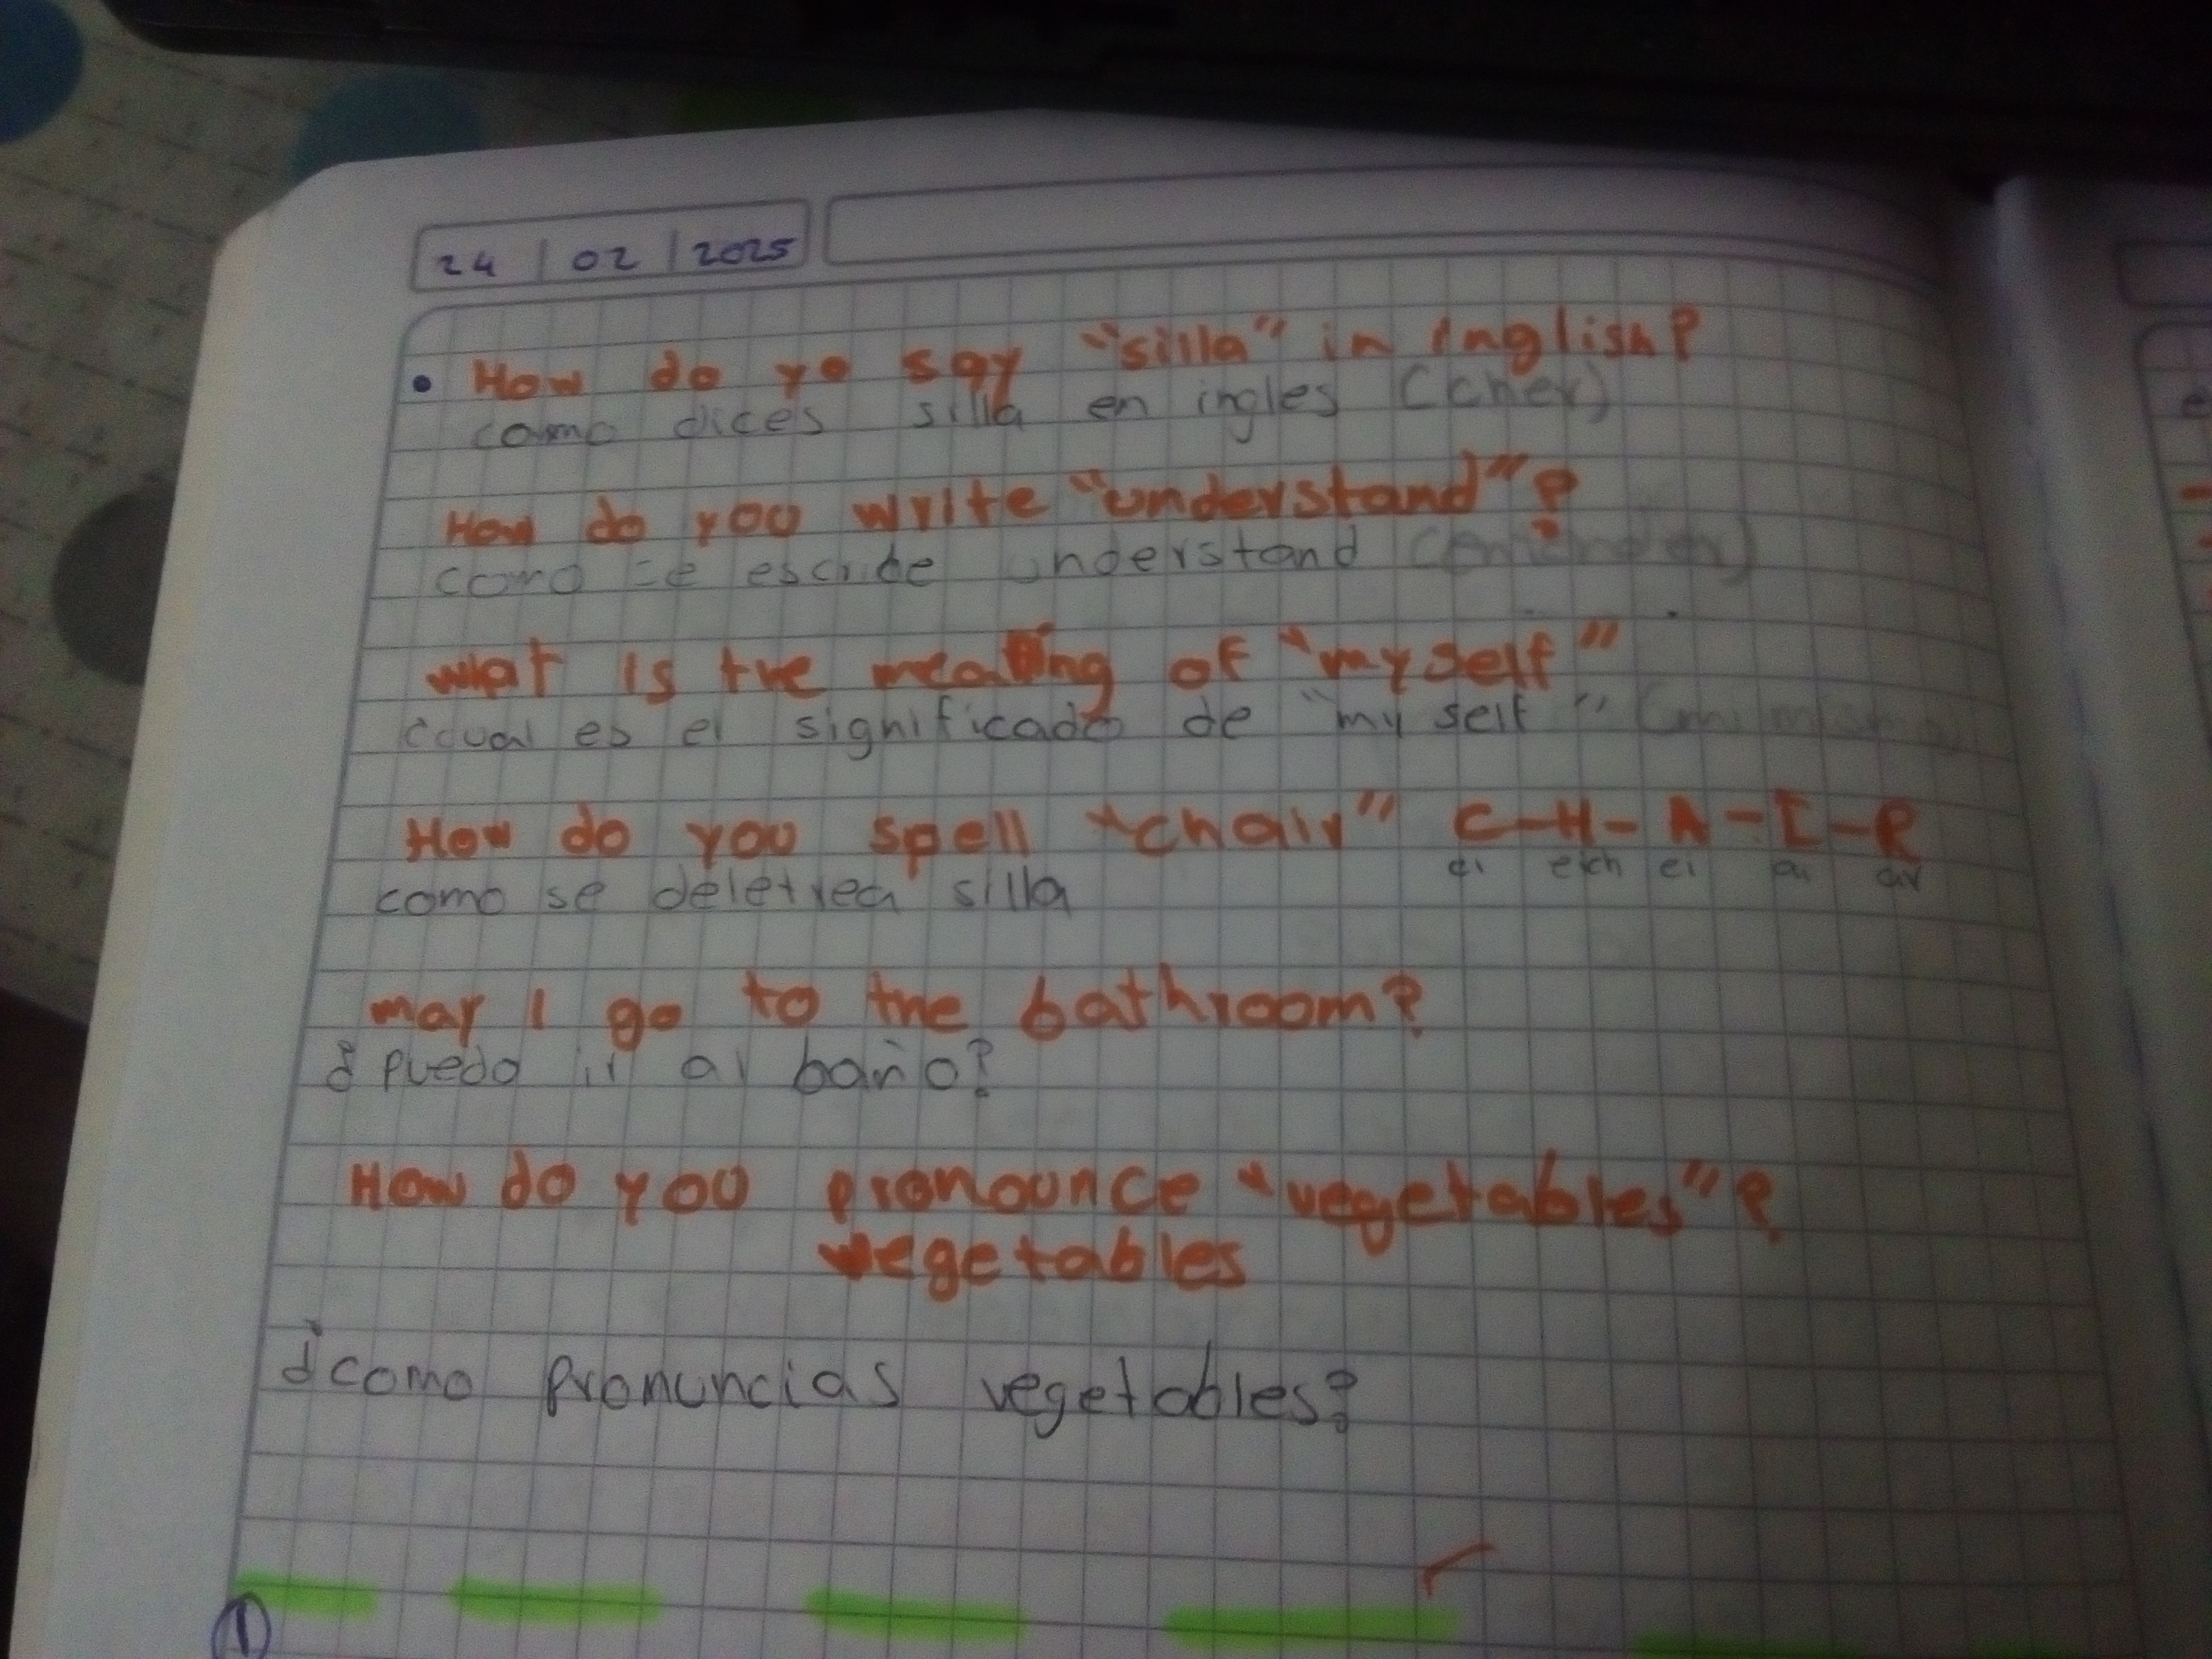 24 | 02 | 2025
• How do yo say "silla" in Inglish?
como dices silla en ingles (cher)
How do you write "understand"?
como se escribe understand
wat is the meaning of "myself"
¿cual es el significado de "my self"
How do you spell "chair" C-H-A-I-R
ci eich ei ai ar
como se deletrea silla
may I go to the bathroom?
¿puedo ir al baño?
How do you pronounce "vegetables"?
vegetables
¿como pronuncias vegetables?
1